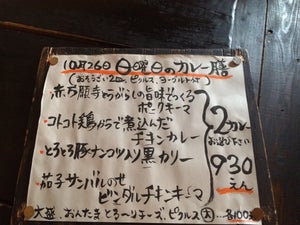 10月26日 日曜日のカレー膳
(おそうざい2品、ピクルス、ヨーグルトつき)
・赤万願寺とうがらしの旨味でつくる
ポークキーマ
・コトコト鶏がらで煮込んだ
チキンカレー
・とろとろ豚ナンコツ入り黒カリー
・茄子サンバルのせ
ビンダルチキンキーマ
2カレー
お選び下さい
930
えん
大盛、おんたま とろ〜りチーズ、ピクルス大 …各100